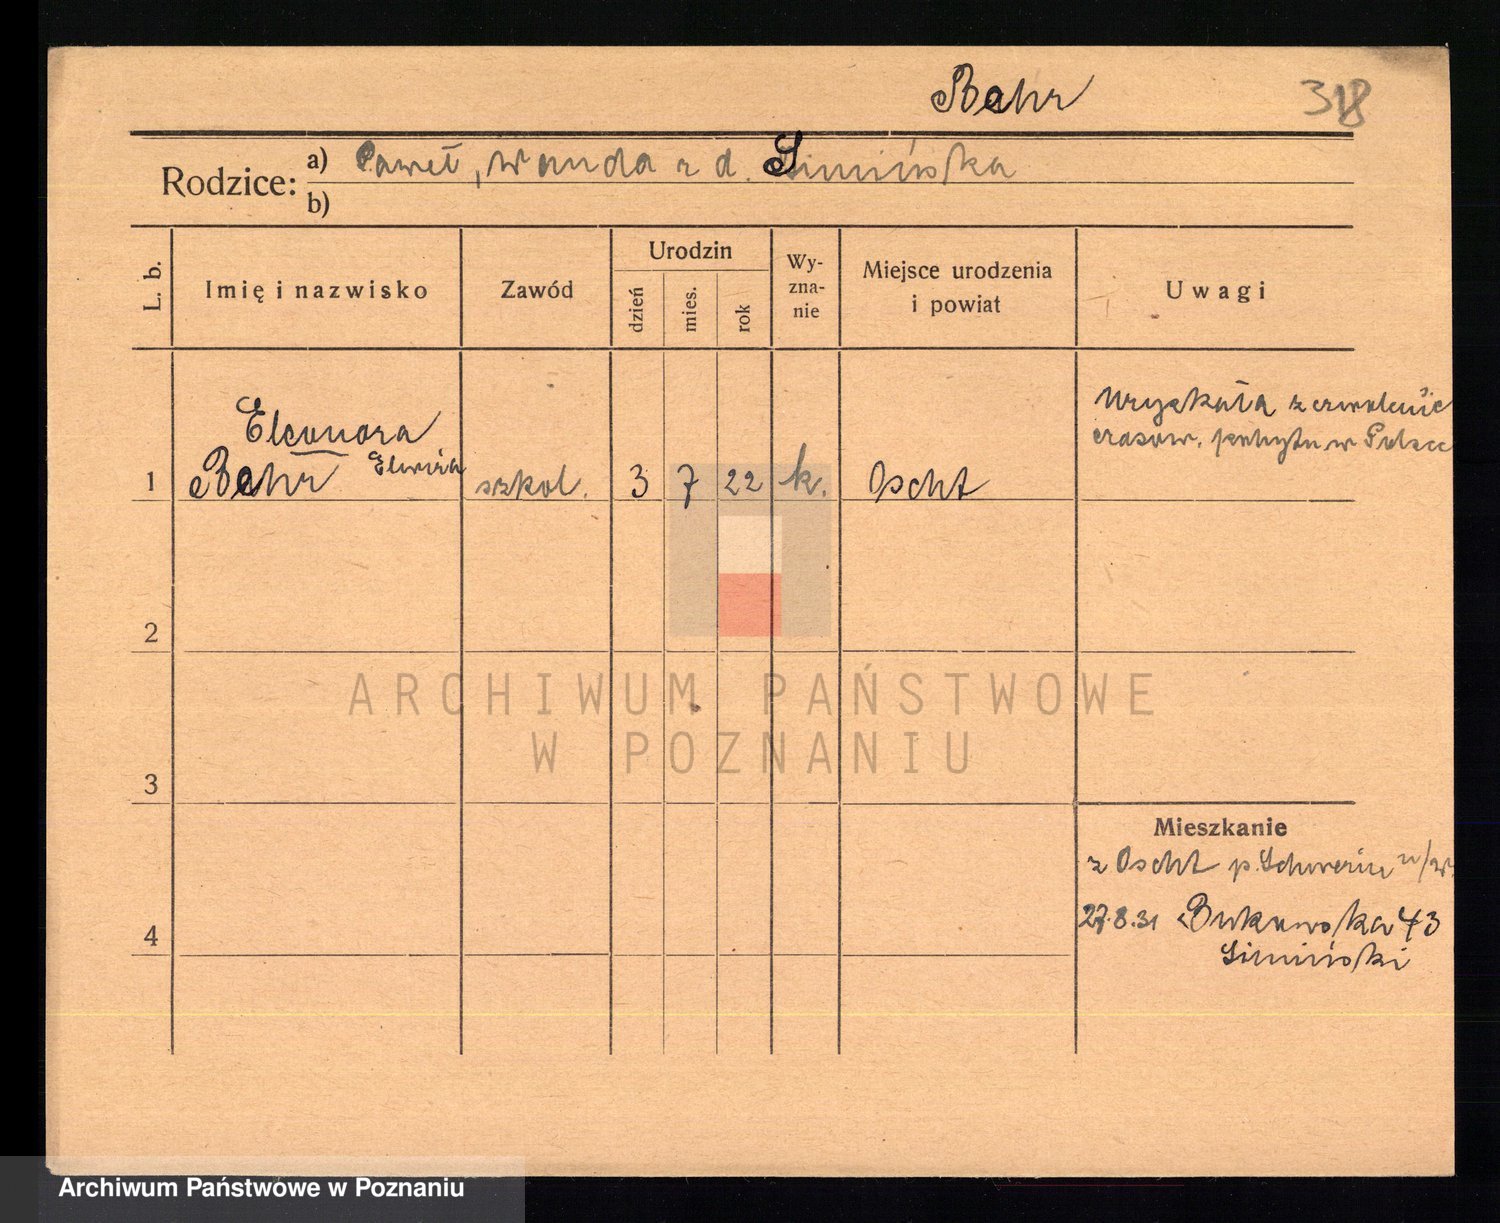 Behr 318
Rodzice:
a) Paweł, Wanda z d. Simińska
b)
L. b.
Imię i nazwisko
Zawód
Urodzin
dzień
mies.
rok
Wy-
zna-
nie
Miejsce urodzenia
i powiat
Uwagi
Eleonora
1 Behr Elwira szkol. 3 7 22 k. Oscht
Uzyskała zezwolenie
czasow. pobytu w Polsce
2
3
4
Mieszkanie
z Oscht p. Schwerin n/W.
27.8.31 Bukowska 43
Simiński
ARCHIWUM PAŃSTWOWE
W POZNANIU
Archiwum Państwowe w Poznaniu